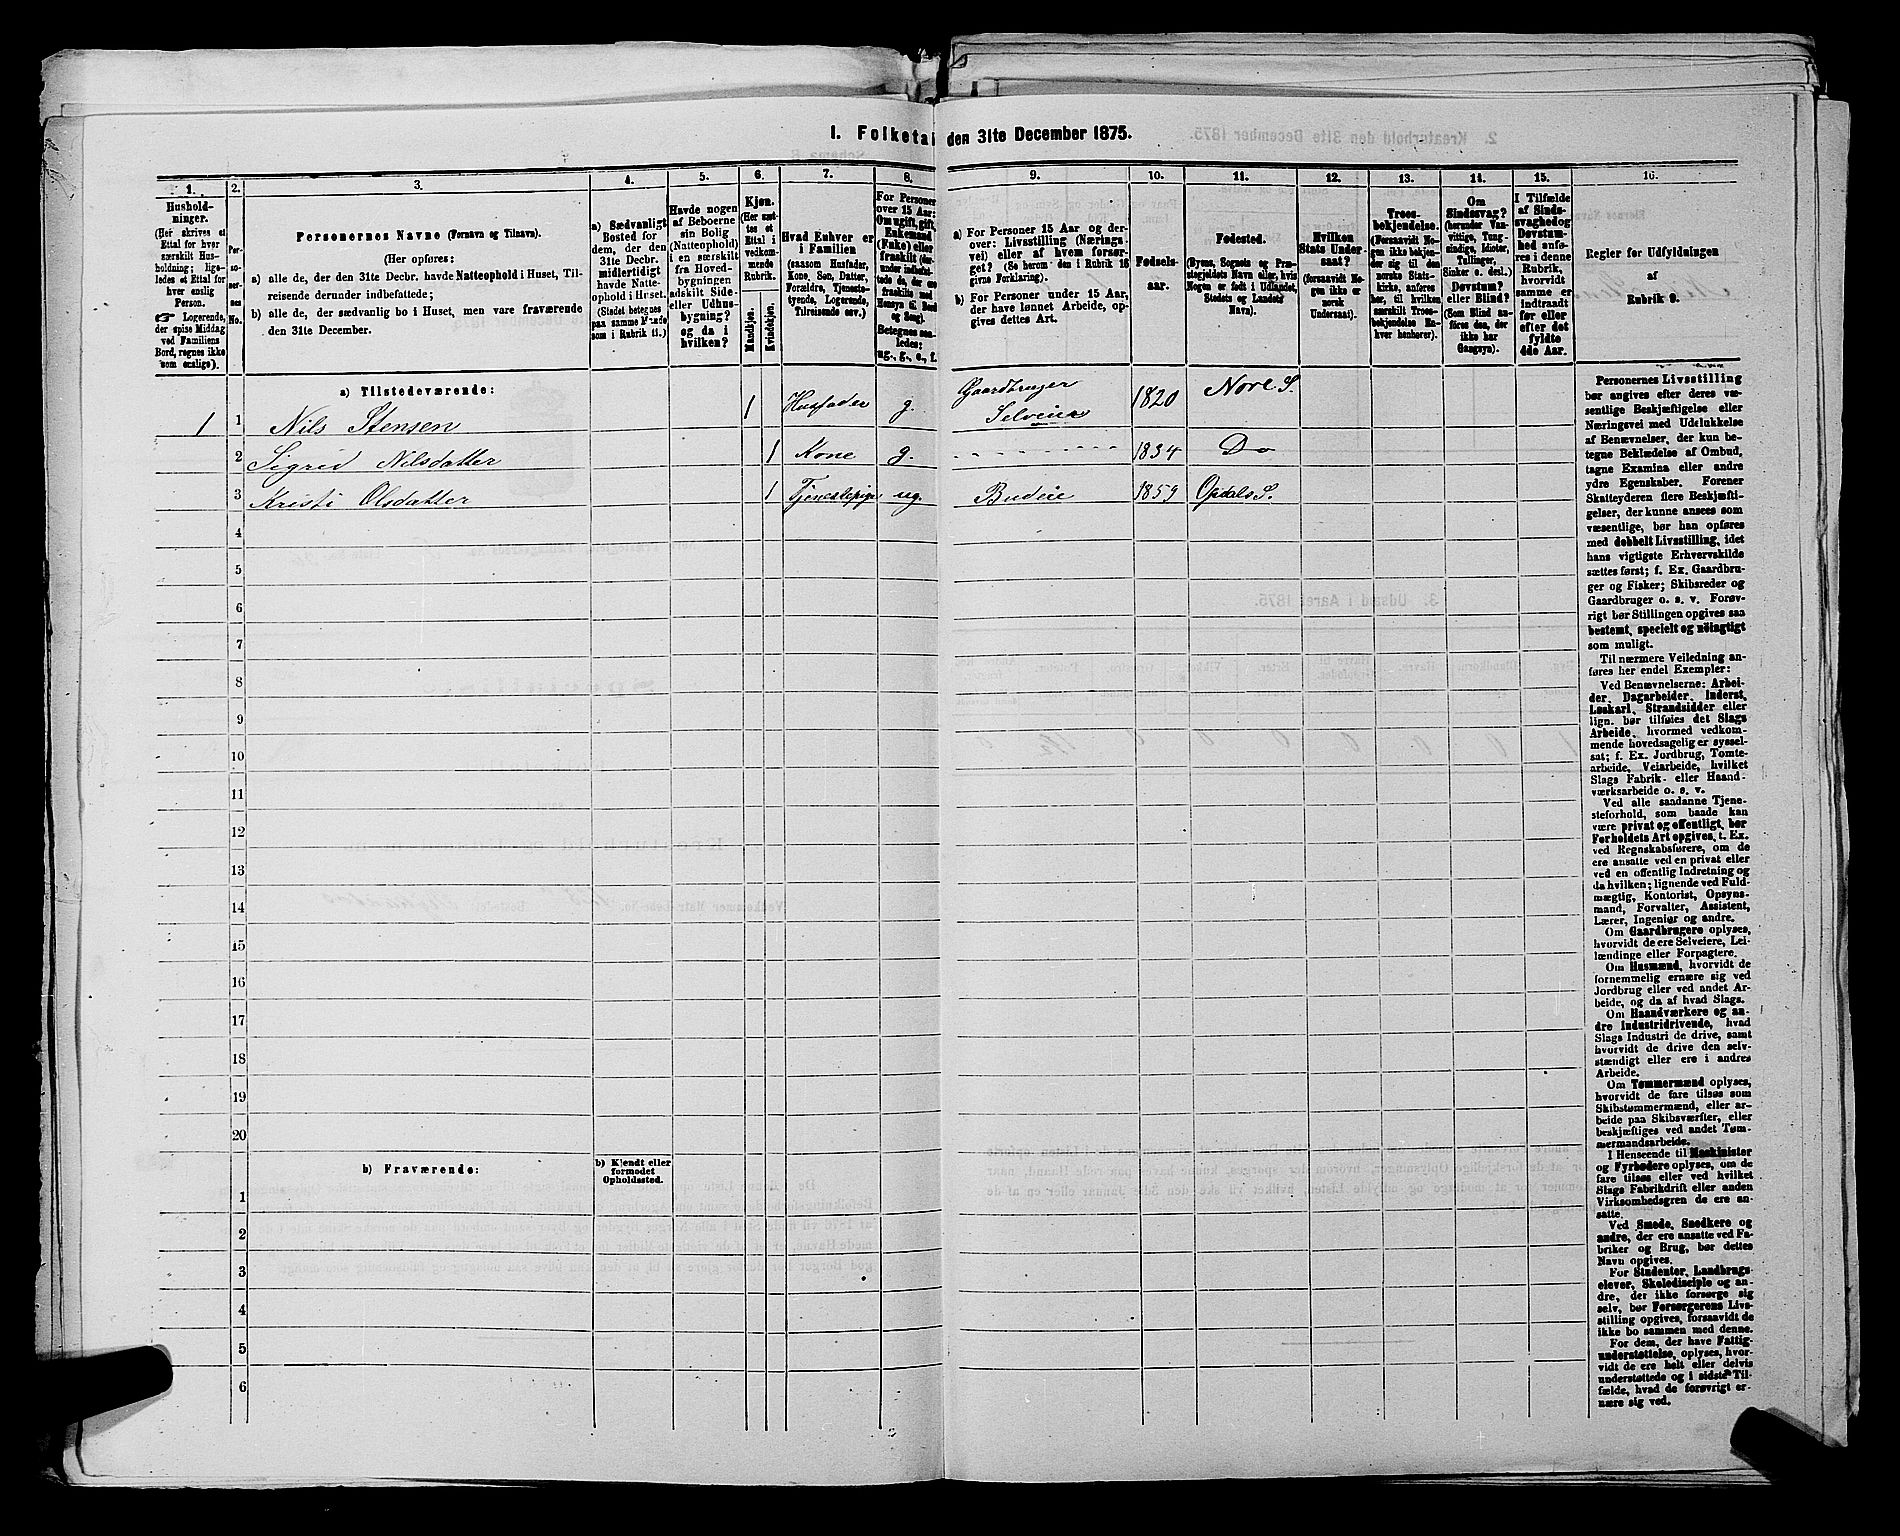 1. Folketal den 31te December 1875.
1. 2. 3. 4. 5. 6. 7. 8. 9. 10. 11. 12. 13. 14. 15. 16.
Hushold-
ninger.
(Her skrives et
Ettal for hver
særskilt Hus-
holdning; lige-
ledes et Ettal for
hver enslig
Person.
☞ Logerende,
der spise Middag
ved Familiens
Bord, regnes ikke
som enslige).
Per-
so-
ner-
nes
No.
Personernes Navne (Fornavn og Tilnavn).
(Her opføres:
a) alle de, der den 31te Decbr. havde Natteophold i Huset, Til-
reisende derunder indbefattede;
b) alle de, der sædvanlig bo i Huset, men vare fraværende
den 31te December.
a) Sædvanligt
Bosted for
dem, der den
31te Decbr.
midlertidigt
havde Natte-
ophold i Huset.
(Stedet betegnes
paa samme Maade
som i Rubrik 11.)
Havde nogen
af Beboerne
sin Bolig
(Natteophold)
i en særskilt
fra Hoved-
bygningen
adskilt Side-
eller Udhus-
bygning?
og da i
hvilken?
Kjøn.
(Her sæt-
tes et
Ettal i
vedkom-
mende
Rubrik.
Mandkjøn.
Kvindekjøn.
Hvad Enhver er
i Familien
(saasom Husfader,
Kone, Søn, Datter,
Forældre, Tjeneste-
tyende, Logerende,
Tilreisende osv.)
For Personer
over 15 Aar:
Om ugift, gift,
Enkemand
(Enke) eller
fraskilt
Betegnes saa-
ledes:
ug., g., e., f.
a) For Personer 15 Aar og der-
over: Livsstilling (Nærings-
vei) eller af hvem forsør-
get? (Se herom den i Rubrik 16
givne Forklaring).
b) For Personer under 15 Aar,
der have lønnet Arbeide, op-
gives dettes Art.
Fødsels-
aar.
Fødested.
(Byens, Sognets og Præ-
stegjeldets Navn eller, hvis
Nogen er født i Udlandet,
Stedets og Landets
Navn).
Hvilken
Stats Under-
saat?
(forsaavidt No-
gen ikke er
norsk
Undersaat).
Troes-
bekjendelse.
(Forsaavidt No-
gen ikke beken-
der sig til den
norske Stats-
kirke, anføres
her, til hvilken
særskilt Troes-
bekjendelse En-
hver henhører).
Om
Sindssvag?
(herunder Van-
vittige, Tung-
sindige, Idioter,
Tullinger,
Sinker o. desl.)
Døvstum?
eller Blind?
(Som Blind an-
føres den, der
ikke har
Gangsyn).
I Tilfælde
af Sinds-
svaghed og
Døvstum-
hed anfø-
res i denne
Rubrik,
hvorvidt
samme er
indtraadt
før eller
efter det
fyldte
4de Aar.
Regler for Udfyldningen
af
Rubrik 9.
a) Tilstedeværende:
1 1 Nils Stensen 1 Husfader g. Gaardbruger Selveier 1820 Nore S.
2 Sigrid Nilsdatter 1 Kone g. - - - - - - - 1834 Do
3 Kristi Olsdatter 1 Tjenestepige ug. Budeie 1859 Opdals S.
4
5
6
7
8
9
10
11
12
13
14
15
16
17
18
19
20
b) Fraværende:
b) Kjendt eller
formodet
Opholdssted.
1
2
3
4
5
6
Personernes Livsstilling
bør angives efter deres væ-
sentlige Beskjæftigelse eller
Næringsvei med Udelukkelse
af Benævnelser, der kun be-
tegne Beklædelse af Ombud,
tagne Examina eller andre
ydre Egenskaber. Forener
Skatteyderen flere Beskjæfti-
gelser, der kunne ansees som
væsentlige, bør han opføres
med dobbelt Livsstilling, idet
hans vigtigste Erhvervskilde
sættes først; f. Ex. Gaardbru-
ger og Fisker; Skibsreder og
Gaardbruger o. s. v. Forøv-
rigt bør Stillingen opgives saa
bestemt, specielt og nøiagtigt
som muligt.
Til nærmere Veiledning an-
føres her endel Exempler:
Ved Benævnelserne: Arbei-
der, Dagarbeider, Inderst,
Løskarl, Strandsidder eller
lign. bør tilføies det Slags
Arbeide, hvormed vedkom-
mende hovedsagelig er syssel-
sat; f. Ex. Jordbrug, Tomte-
arbeide, Veiarbeide, hvilket
Slags Fabrik- eller Haand-
værksarbeide o. s. v.
Ved alle saadanne Tjene-
steforhold, som baade kan
være privat og offentligt, bør
Forholdets Art opgives, t. Ex.
ved Regnskabsførere, om de
ere ansatte ved en privat eller
ved en offentlig Indretning og
da hvilken; lignende ved Fuld-
mægtig, Kontorist, Opsyns-
mand, Forvalter, Assistent,
Lærer, Ingeniør og andre.
Om Gaardbrugere oplyses,
hvorvidt de ere Selveiere, Lei-
lændinge eller Forpagtere.
Om Husmænd, hvorvidt de
fornemmelig ernære sig ved
Jordbrug eller ved andet Ar-
beide, og da af hvad Slags.
Om Haandværkere og an-
dre Industridrivende, hvad
Slags Industri de drive, samt
hvorvidt de drive den selv-
stændigt eller ere i andres
Arbeide.
Om Tømmermænd oplyses,
hvorvidt de fare tilsøs som
Skibstømmermænd, eller ar-
beide paa Skibsværfter, eller
beskjæftiges ved andet Tøm-
mermandsarbeide.
I Henseende til Maskinister
og Fyrbødere oplyses, om de
fare tilsøs eller ved hvilket
Slags Fabrikdrift eller anden
Virksomhedsgren de ere an-
satte.
Ved Smede, Snedkere og
andre, der ere ansatte ved Fa-
briker og Brug, bør dettes
Navn opgives.
For Studenter, Landbrugs-
elever, Skoledisciple og an-
dre, der ikke forsørge sig
selv, bør Forsørgerens Livs-
stilling opgives, forsaavidt de
ikke bo sammen med denne.
For dem, der have Fattig-
understøttelse, oplyses, hvor-
vidt de ere helt eller delvis
understøttede og i sidste Til-
fælde, hvad de forøvrigt er-
nære sig ved.